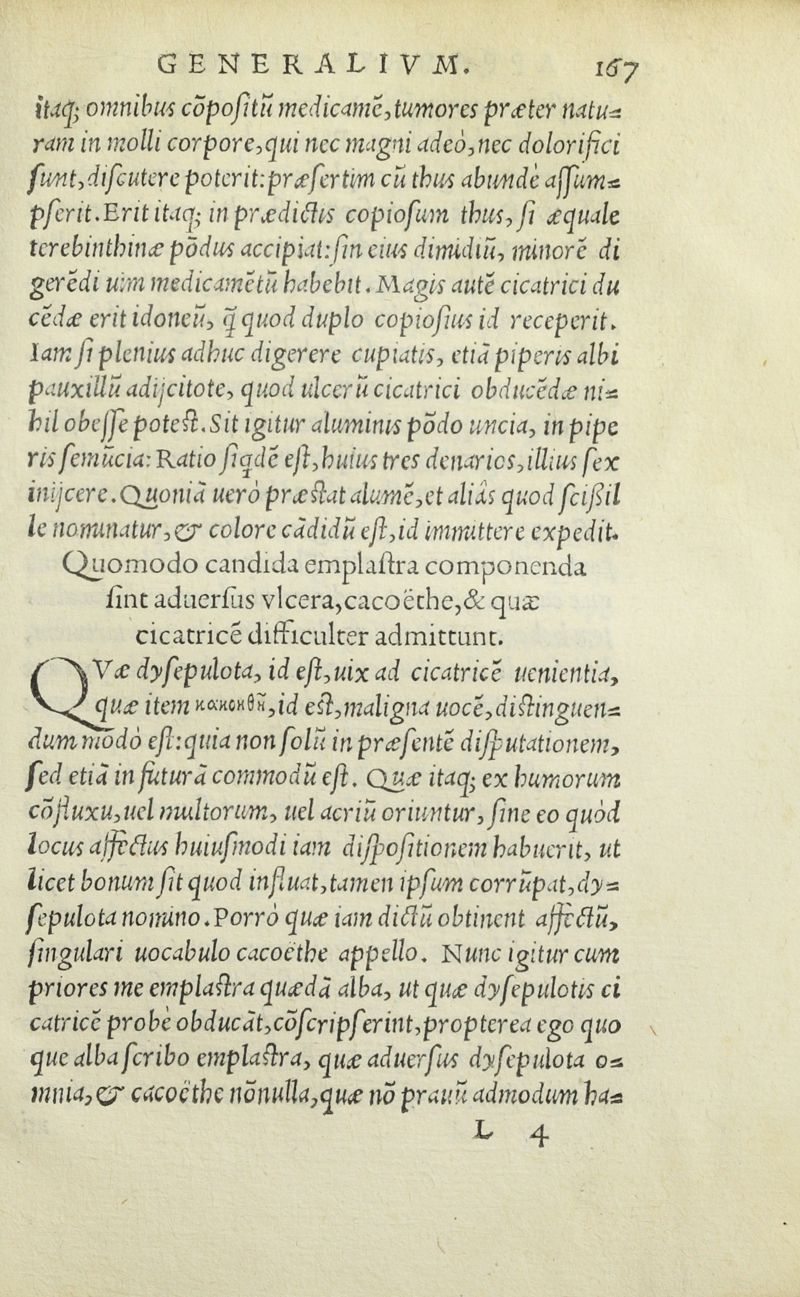 GENERALIVM. 167
itaq; omnibus cōpoſitū medicamē, tumores præter natu-
ram in molli corpore, qui nec magni adeò, nec dolorifici
ſunt, diſcutere poterit: præſertim cū thus abundè aſſum-
pſerit. Erit itaq; in prædictis copioſum thus, ſi æquale
terebinthinæ pōdus accipiat: ſin eius dimidiū, minorē di
gerēdi uim medicamētū habebit. Magis autē cicatrici du
cēdæ erit idoneū, q̄ quod duplo copioſius id receperit.
Iam ſi plenius adhuc digerere cupiatis, etiā piperis albi
pauxillū adijcitote, quod ulcerū cicatrici obducēdæ ni-
hil obeſſe poteſt. Sit igitur aluminis pōdo uncia, in pipe
ris ſemūcia: Ratio ſiqdē eſt, huius tres denarios, illius ſex
inijcere. Quoniā uerò præſtat alumē, et aliàs quod ſciſsil
le nominatur, & colore cādidū eſt, id immittere expedit.
Quomodo candida emplaſtra componenda
ſint aduerſus vlcera, cacoëthe, & quæ
cicatricē difficulter admittunt.
QVæ dyſepulota, id eſt, uix ad cicatricē uenientia,
quæ item κακοήθη, id eſt, maligna uocē, diſtinguen-
dum modò eſt: quia non ſolū in præſentē diſputationem,
ſed etiā in futurā commodū eſt. Quæ itaq; ex humorum
cōfluxu, uel multorum, uel acriū oriuntur, ſine eo quòd
locus affectus huiuſmodi iam diſpoſitionem habuerit, ut
licet bonum ſit quod influat, tamen ipſum corrūpat, dy-
ſepulota nomino. Porrò quæ iam dictū obtinent affectū,
ſingulari uocabulo cacoëthe appello. Nunc igitur cum
priores me emplaſtra quædā alba, ut quæ dyſepulotis ci
catricē probè obducāt, cōſcripſerint, propterea ego quo
que alba ſcribo emplaſtra, quæ aduerſus dyſepulota o-
mnia, & cacoëthe nōnulla, quæ nō prauū admodum ha-
L 4